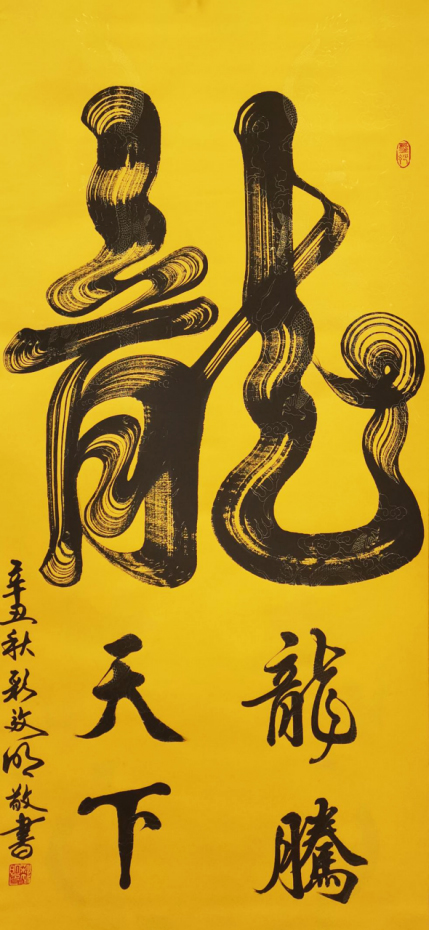 龍
龍騰
天下
辛丑秋彩效明敬書